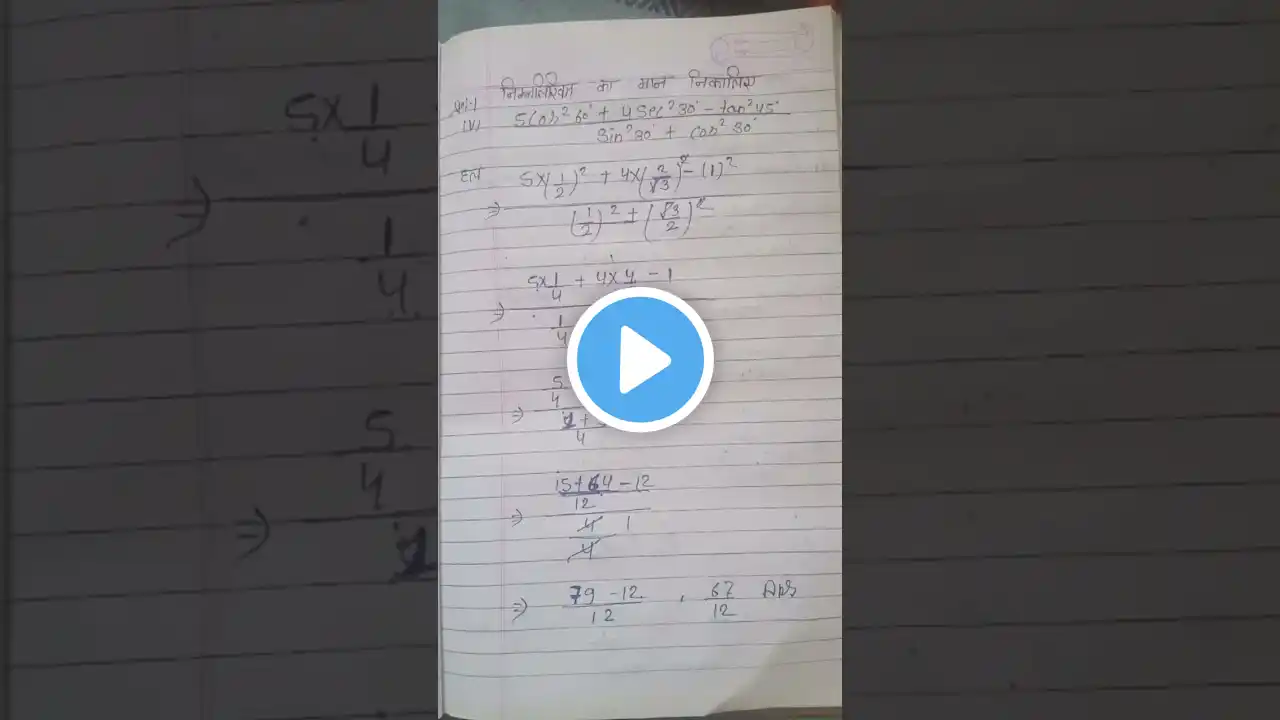 निम्नलिखित का मान निकालिए
(v) 5Cos²60° + 4Sec²30° - tan²45°
Sin²30° + Cos²30°
हल 5×(1/2)² + 4×(2/√3)² - (1)²
⇒ (1/2)² + (√3/2)²
5×1/4 + 4×4 - 1
⇒ 1/4
5/4
⇒ 1 +
4
15+64-12
12
⇒ 4 1
4
⇒ 79-12/12 , 67/12 Ans
5×1/4
⇒ 1/4
5/4
⇒ 1